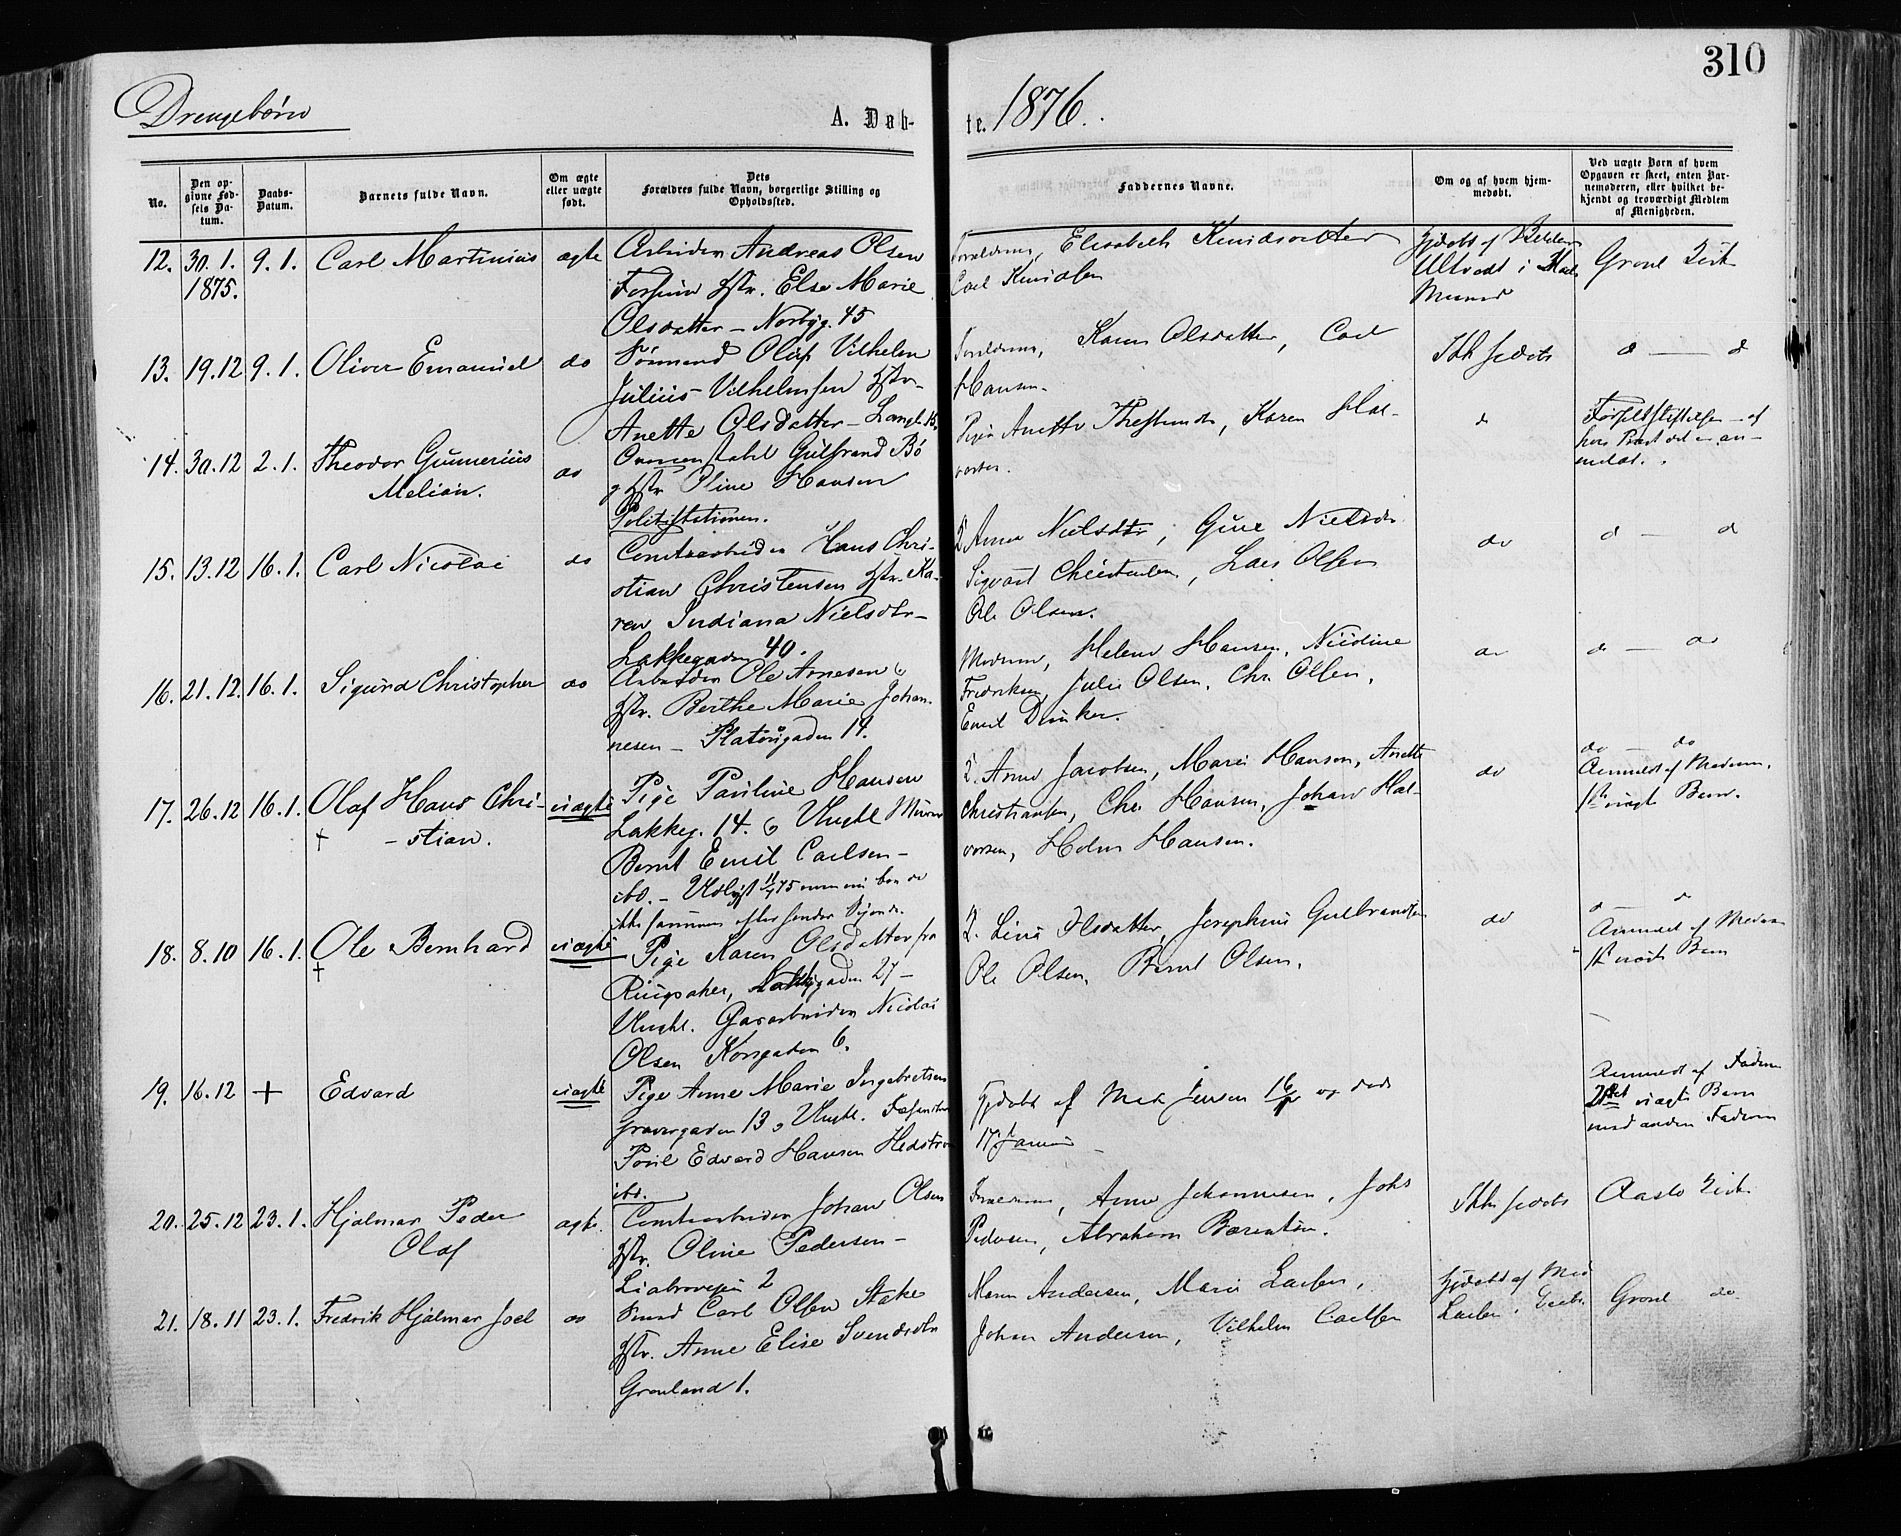 310
Drengebørn
A. Døb- te. 1876.
No.
Den opgivne Fødsels Datum.
Daabs-Datum.
Barnets fulde Navn.
Om ægte eller uægte født.
Dets Forældres fulde Navn, borgerlige Stilling og Opholdssted.
Faddernes Navne.
Om og af hvem hjemmedøbt.
Ved uægte Born af hvem Opgaven er skeet, enten Barnemoderen, eller hvilket bekjendt og troværdigt Medlem af Menigheden.
12. 30.1. 1875. 9.1. Carl Martinius ægte
Arbeider Andreas Olsen
Hstr. Else Marie
Olsdatter – Norbyg. 45
Forældrene, Elisabeth Knudsdatter
Carl Knudsen
Hjdøbt af
i
13. 19.12 9.1. Oliver Emanuel do
Formand Oluf Vilhelm
Julius Vilhelmsen Hstr.
Anette Olsdatter – Langl. 15.
Forældrene, Karen Olsdatter, Carl
Hansen.
Ikke hjdøbt
d — d
14. 30.12 2.1. Theodor Gunnerius
Melian.
do
Constabel Gulbrand Bø
g Hstr. Oline Hansen
Politistationen.
Pige Anette, Karen Hal-
vorsen.
d
Fødselsstiftelsen – af
hvis Præst det er an-
meldt.
15. 13.12 16.1. Carl Nicolai do
Comtearbeider Hans Chri-
stian Christensen Hstr. Ka-
ren Indiana Nielsdtr –
Lakkegaden 40.
2 Anne Nielsdtr, Gine Nielsdr.
Sigvart Christensen, Lars Olsen
Ole Olsen.
do
d — d
16. 21.12. 16.1. Sigurd Christopher do
Arbeider Ole Arnesen
Hstr. Berthe Marie Johan-
nesen – Platougaden 14.
Moderen, Helene Hansen, Nicoline
Fredriksen, Julie Olsen, Chr. Olsen,
Emil Dunker.
do
d — do
17. 26.12 16.1. Olaf Hans Chri-
† -stian.
uægte
Pige Pauline Hansen
Lakkeg. 14. Ungkl. Murer
Bernt Emil Carlsen –
ibd. –
2. Anne Jacobsen, Marie Hansen, Anette
Christiansen, Chr. Hansen, Johan Hal-
vorsen, Holm Hansen.
do
do — do
Anmeldt af Moderen,
1ste uægte Barn.
18. 8.10 16.1. Ole Bernhard
†
uægte
Pige Karen Olsdatter fra
Ringsaker, gaden 27 –
Ungkl. Gasarbeider Nicolai
Olsen Korsgaden 6.
2. Lina Olsdatter, Josephine Gulbrandsen
Ole Olsen, Bernt Olsen.
do
d — d
Anmeldt af Moderen
1ste uægte Barn
19. 16.12 + Edvard uægte
Pige Anne Marie Ingebretsen
Gravergaden 13, Ungkl.
Edvard Hansen Hedström
ibd.
Hjdøbt af Jensen og død
17 Januar
Anmeldt af Faderen
2det uægte Barn
med anden Fader
20. 25.12 23.1. Hjalmar Peder
Olaf
ægte.
Comtearbeider Johan Olsen
Hstr. Oline Pedersen –
Liabroveien 2
Forældrene, Anne Johannesen, Johs
Pedersen, Abraham Børentsen.
Ikke hjdøbt
Aaslo Kirke
21. 18.11 23.1. Fredrik Hjalmar Joel do
Carl Olsen Stake
Hstr. Anne Elise Svendsdtr
Grønland 1.
Maren Andersen, Marie Larsen,
Johan Andersen, Vilhelm Carlsen
Hjdøbt af
Larsen
Grønl. do